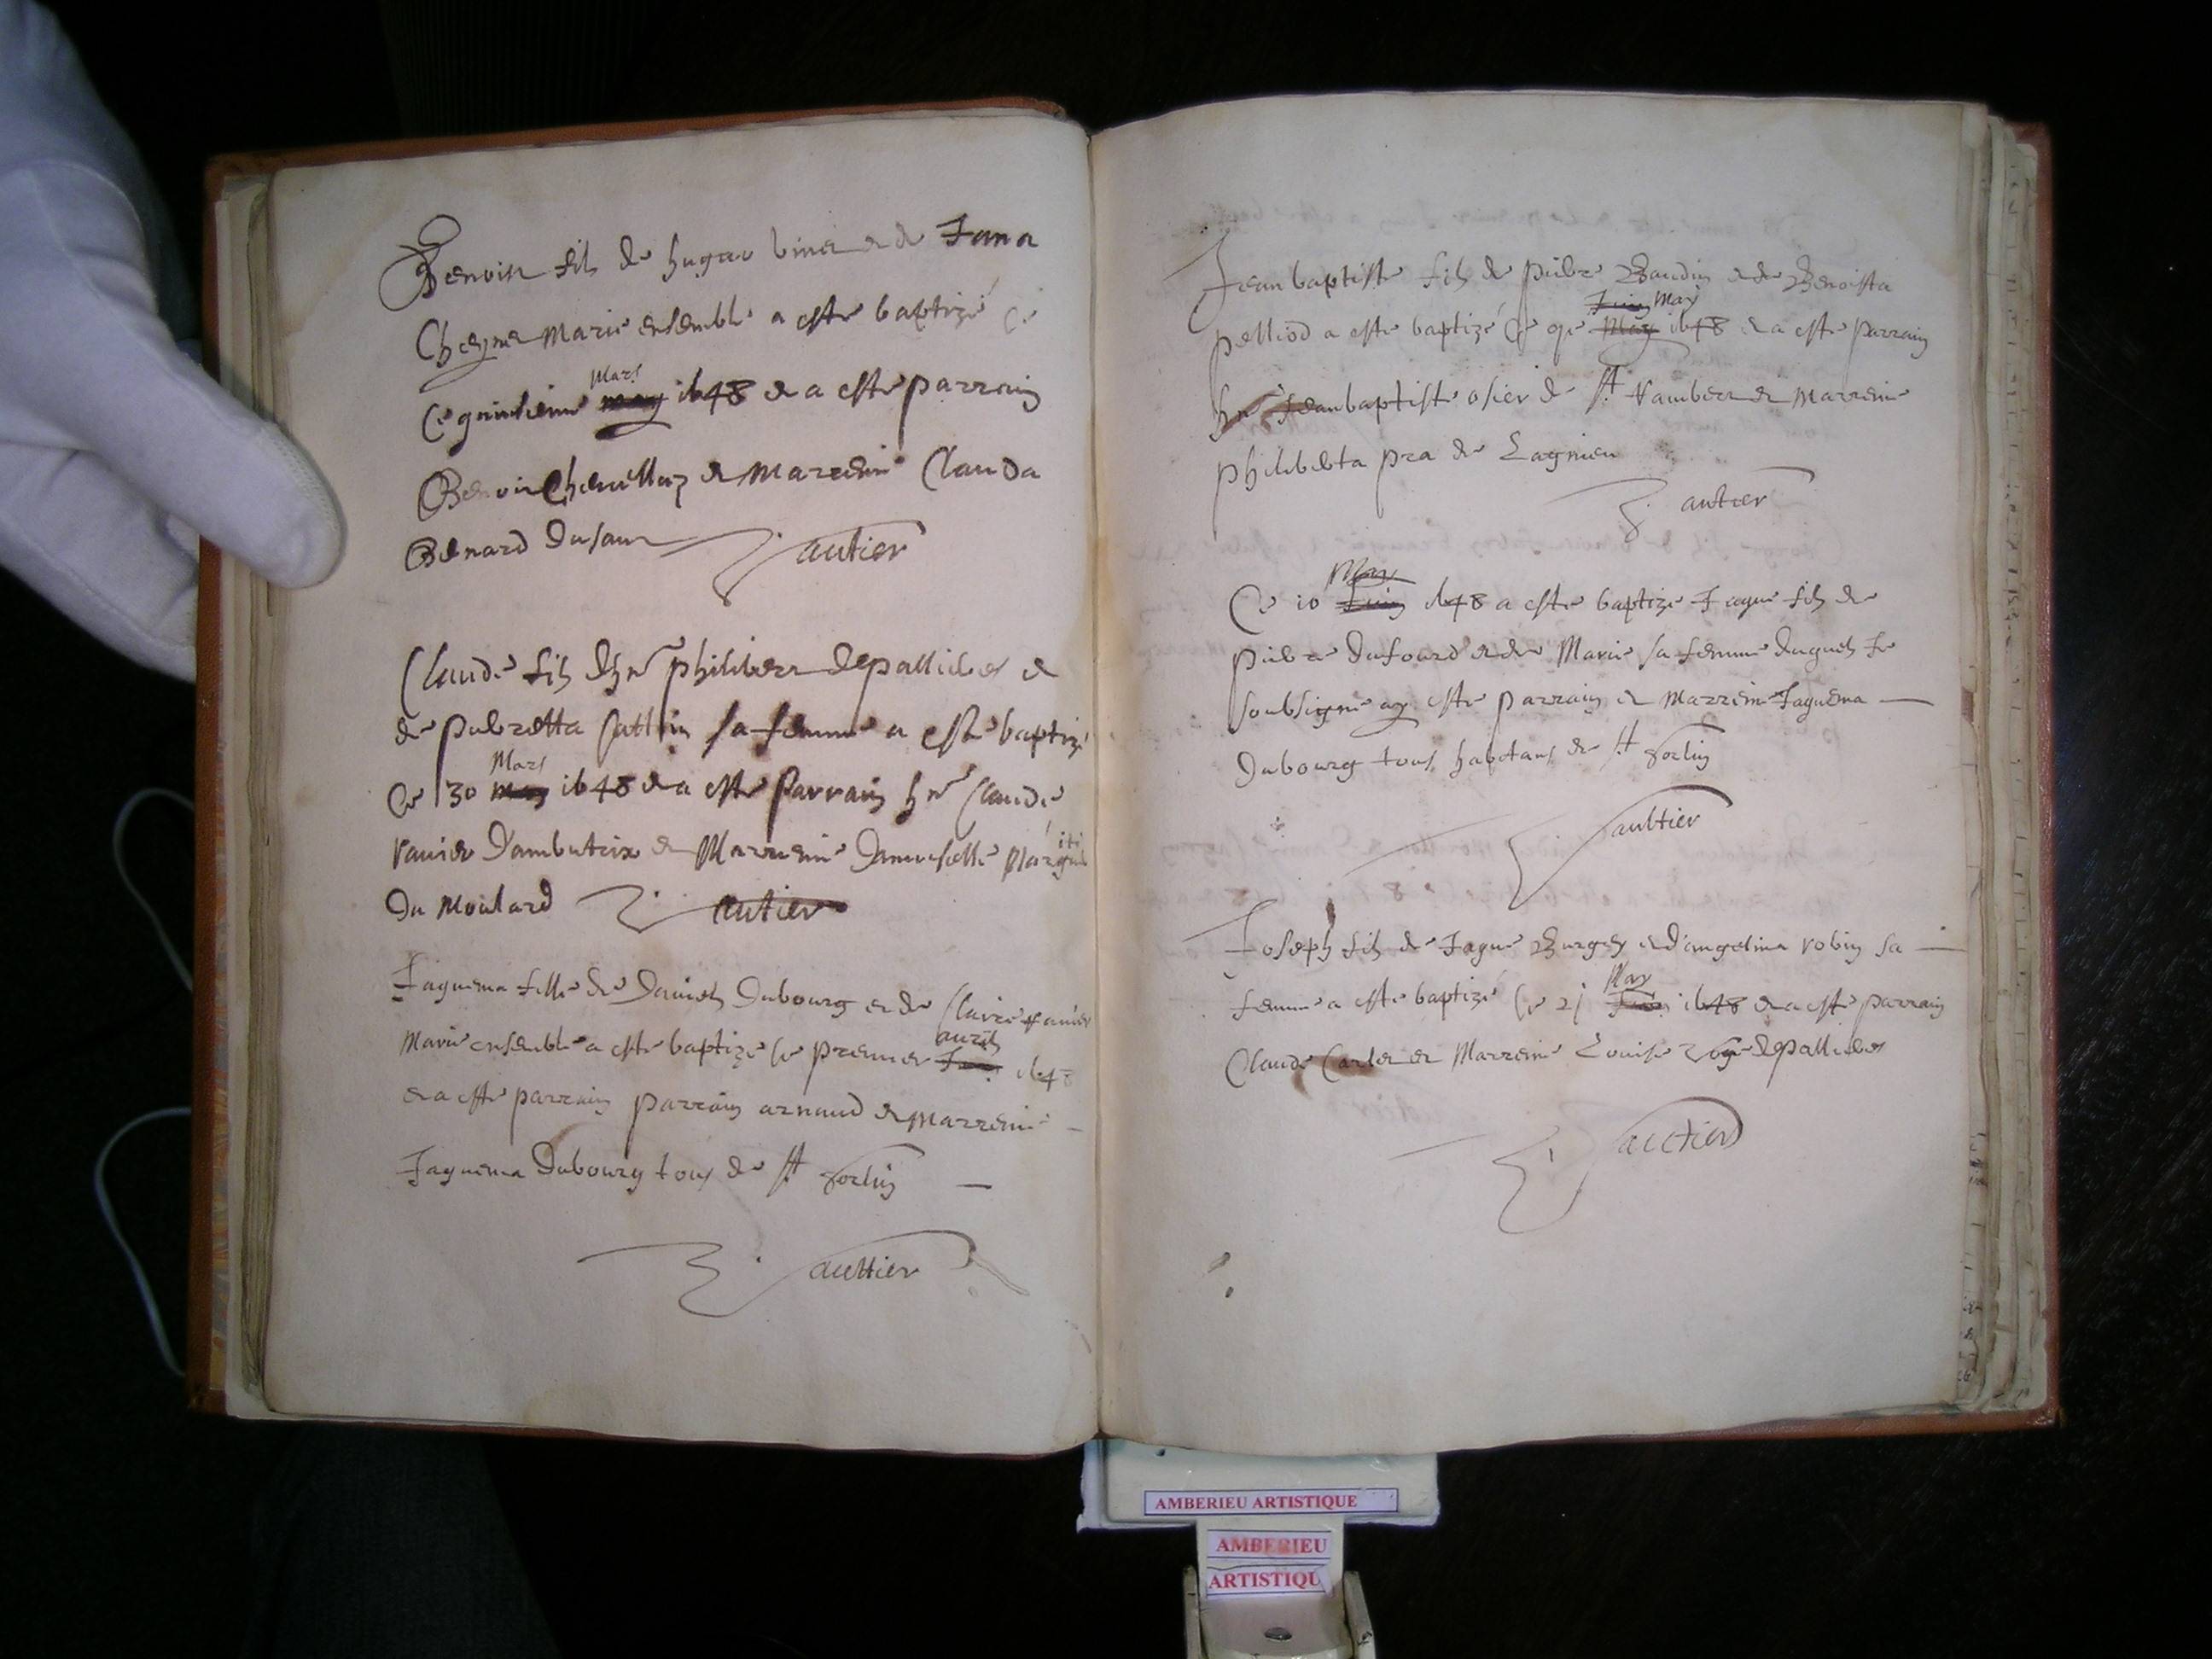 Benoist fils de hugue vinet et de Jana
Cheynet Marie ensemble a este baptizé Ce
Ce quinsieme Mars may 1648 et a este parrain
Benoit Chenillaz et Marreine Clauda
Benard dusaut Gautier
Claude fils dhn.r philibert depallieres et
de pierretta Sa femme a este baptizé
Ce 30 Mars may 1648 et a este Parrain hn.r Claude
vanier d'ambutrix et Marreine damoiselle Margueriti
du Moulard Gautier
Jaquema fille de Daniel dubourg et de Claire vanier
Marie ensemble a este baptize Ce premier auril 1648
et a este parrain parrain arnaud et Marreine
Jaquema Dubourg tous de St Sorlin
Gauttier
Jean baptiste fils de pierre Baudin et de Benoista
pelliod a este baptizé Ce 9e Juin May May 1648 et a este parrain
hn.r Jeanbaptiste osier de St Rambert et Marreine
philiberta pra de Lagnieu
Gautier
Ce 10 May Juin 1648 a este baptize Jaque fils de
pierre dufourd et de Marie sa femme duquel Je
soubsigne ay este parrain et Marreine Jaquema
dubourg tous habitans de St Sorlin
Gaultier
Joseph fils de Jaque Burgey et d'angelina robin sa
femme a este baptizé Ce 21 May Juin 1648 et a este parrain
Claude Carlet et Marreine Louise depallieres
Gauttier
AMBERIEU ARTISTIQUE
AMBERIEU
ARTISTIQU